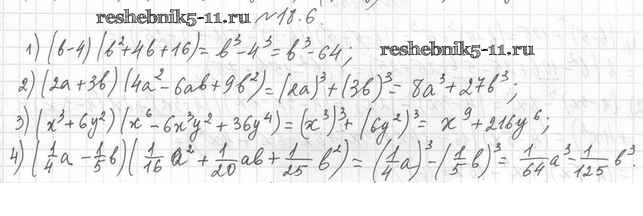 reshebnik5-11.ru №18.6.
1) (b-4)(b²+4b+16) = b³-4³ = b³-64; reshebnik5-11.ru
2) (2a+3b)(4a²-6ab+9b²) = (2a)³+(3b)³ = 8a³+27b³;
3) (x³+6y²)(x⁶-6x³y²+36y⁴) = (x³)³+(6y²)³ = x⁹+216y⁶;
4) (1/4 a - 1/5 b)(1/16 a² + 1/20 ab + 1/25 b²) = (1/4 a)³ - (1/5 b)³ = 1/64 a³ - 1/125 b³.